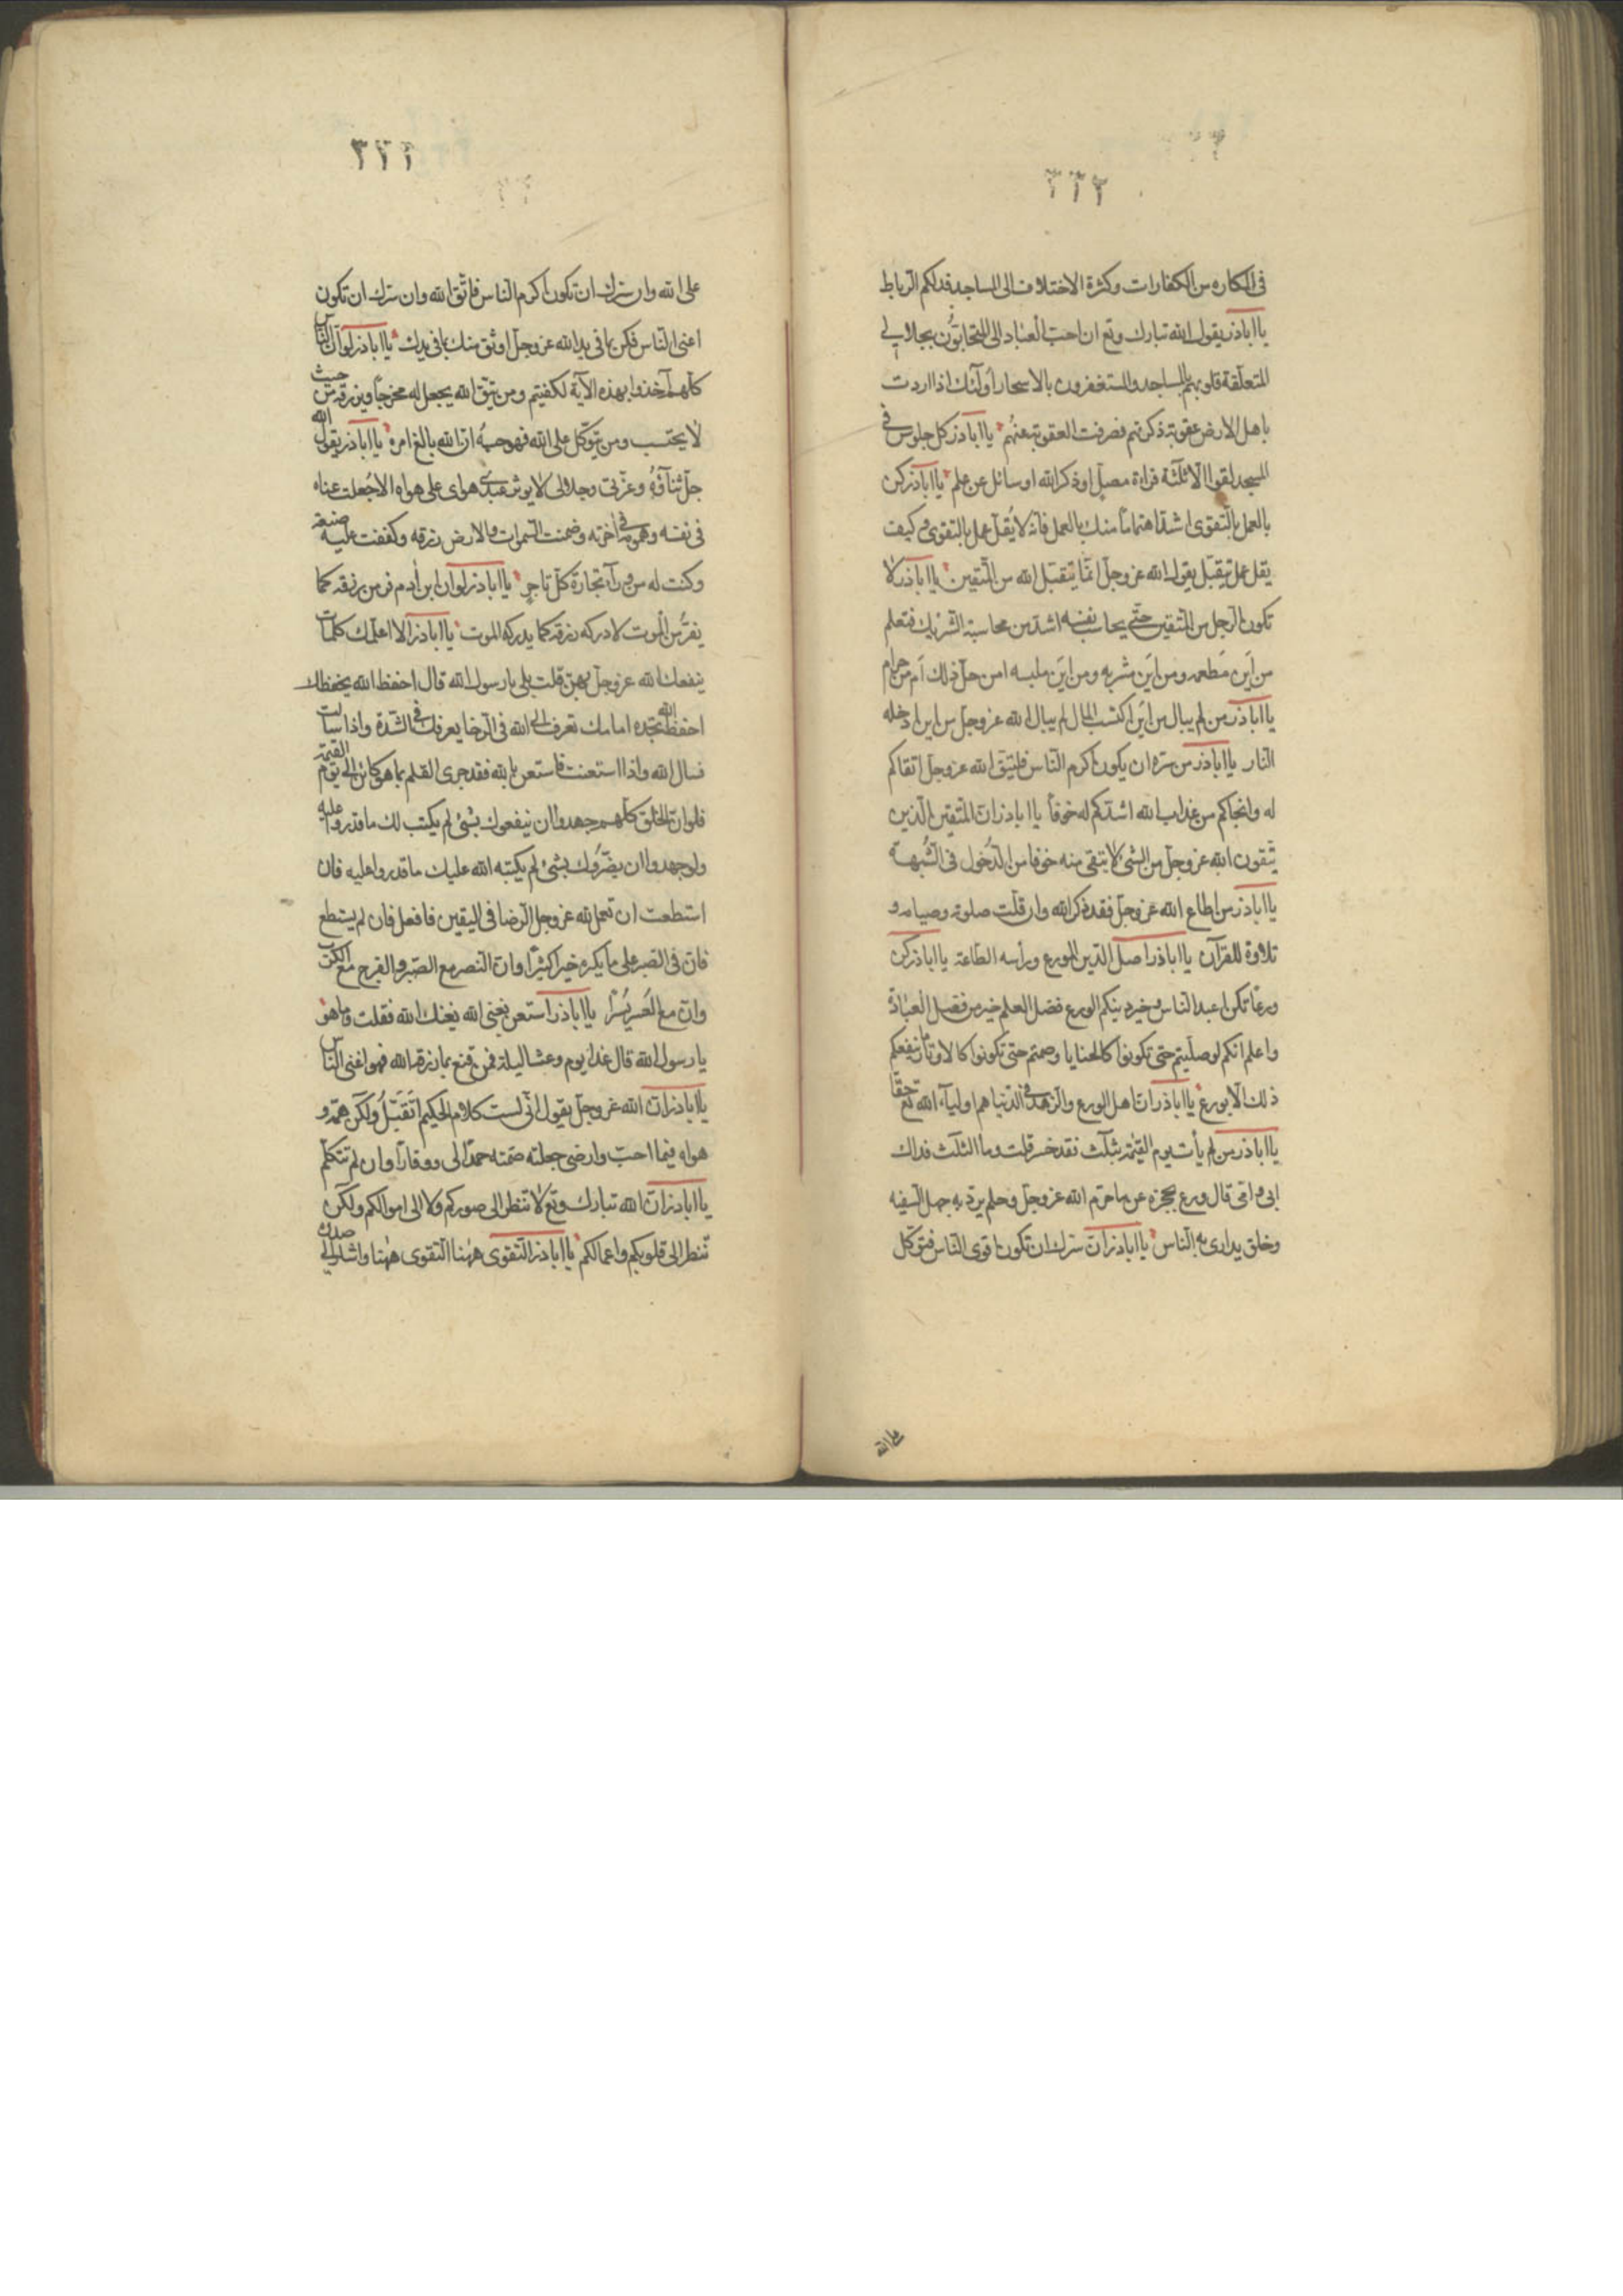 ٢٢٢
فى المكاره من الكفارات وكثرة الاختلاف الى المساجد فذلكم الرباط
يا اباذر يقول الله تبارك وتع ان احب العباد الى المتحابّون بجلالى
المتعلّقة قلوبهم بالمساجد والمستغفرون بالاسحار اولئك اذا اردت
باهل الارض عقوبة ذكرتهم فصرفت العقوبة عنهم يا اباذر كل جلوس فى
المسجد لغو الا ثلثة قراءة مصلّ او ذكر الله او سائل عن علم يا اباذر كن
بالعمل بالتقوى اشدّ اهتماما منك بالعمل فانه لا يُقل عمل بالتقوى وكيف
يقل عمل يتقبّل يقول الله عز وجل انّما يتقبّل الله من المتقين يا اباذر لا
تكون الرجل من المتقين حتّى يحاسب نفسه اشد من محاسبة الشريك فتعلم
من اين مَطعمه ومن اين مشربه ومن اين ملبسه امن حلّ ذلك ام من حرام
يا اباذر من لم يبال من اين اكتسب المال لم يبال الله عز وجل من اين ادخله
النار يا اباذر من سرّه ان يكون اكرم الناس فليتق الله عز وجل اتقاكم
له وانجاكم من عذاب الله اشدّكم له خوفاً يا اباذر انّ المتقين الذين
يتّقون الله عز وجل من الشئ لا يتقى منه خوفا من الدّخول فى الشُّبهة
يا اباذر من اطاع الله عز وجل فقد ذكر الله وان قلّت صلوته وصيامه و
تلاوة للقرآن يا اباذر اصل الدّين الورع ورأسه الطاعة يا اباذر كن
ورعًا تكن اعبد الناس وخير دينكم الورع فضل العلم خير من فضل العبادة
واعلم انكم لو صلّيتم حتى تكونوا كالحنايا وصمتم حتى تكونوا كالاوتار ما ينفعكم
ذلك الا بورع يا اباذر انّ اهل الورع والزهد فى الدّنيا هم اولياء الله تع حقّا
يا اباذر من لم يأت يوم القيمة بثلث فقد خسر قلت وما الثلث فداك
ابى وامّى قال ورع يحجزه عن ما حرّم الله عز وجل وحلم يردّ به جهل السّفيه
وخلق يدارى به الناس يا اباذر انّ سرّك ان تكون اقوى الناس فتوكّل
على الله
٢٢٣
على الله وان سرّك ان تكون اكرم الناس فاتّق الله وان سرّك ان تكون
اغنى الناس فكن بما فى يد الله عز وجل اوثق منك بما فى يدك يا اباذر لو انّ الناس
كلّهم اخذوا بهذه الآية لكفيتهم ومن يتّق الله يجعل له مخرجاً ويرزقه من حيث
لا يحتسب ومن يتوكّل على الله فهو حسبُه انّ الله بالغ امره يا اباذر يقول الله
جلّ ثناؤهُ وعزّتى وجلالى لا يوثر عبدى هواى على هواه الا جُعلت غناه
فى نفسه وهمومه فى اخرته وضمنت السموات والارض رزقه وكففت عليه ضيعته
وكنت له من وراء تجارة كلّ تاجرٍ يا اباذر لو ان ابن ادم فر من رزقه كما
يفرّ من الموت لادركه رزقه كما يدركه الموت يا اباذر الا اعلّمك كلمات
ينفعك الله عز وجل بهنّ قلت بلى يا رسول الله قال احفظ الله يحفظك
احفظ الله تجده امامك تعرف الى الله فى الرخا يعرفك فى الشدّة واذا سألت
فسال الله واذا استعنت فاستعن بالله فقد جرى القلم بما هو كائن الى يوم القيمة
فلو ان الخلق كلّهم جهدوا ان ينفعوك بشئ لم يكتب لك ما قدروا عليه
ولو جهدوا ان يضرّوك بشئ لم يكتبه الله عليك ما قدروا عليه فان
استطعت ان تعمل لله عز وجل الرّضا فى اليقين فافعل فان لم يستطع
فانّ فى الصّبر على ما يكره خيراً كثيرًا وان النصر مع الصّبر والفرج مع الكرب
وانّ مع العُسر يُسرًا يا اباذر استعن بغنى الله يغنك الله فقلت وما هو
يا رسول الله قال غداء يوم وعشا ليلة فمن قنع بما رزقه الله فهو اغنى الناس
يا اباذر انّ الله عز وجل يقول انّى لست كلام الحكيم اتَقَبّلُ ولكن همّه و
هواه فيما احبّ وارضى جعلته صمته حمدًا لى ووقارًا وان لم يتكلّم
يا اباذر انّ الله تبارك وتع لا تنظر الى صوركم ولا الى اموالكم ولكن
تنظر الى قلوبكم واعمالكم يا اباذر التّقوى ههنا التقوى ههنا واشار الى صدره